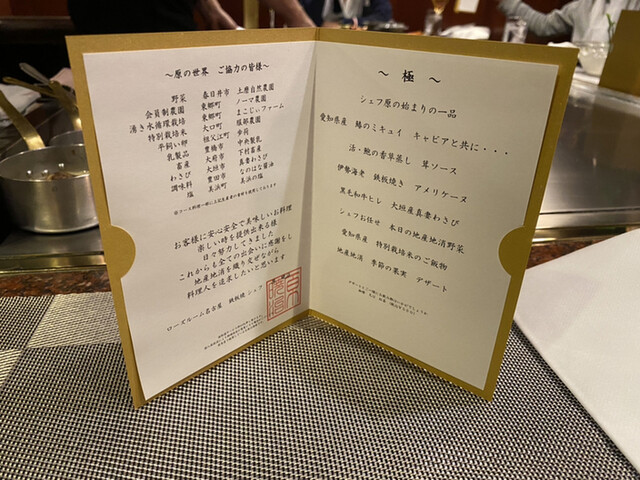 ～原の世界　ご協力の皆様～
野菜　春日井市　土磨自然農園
会員制農園　東郷町　ノーマ農園
湧き水循環栽培　東郷町　まこじぃファーム
特別栽培米　大口町　服部農園
平飼い卵　祖父江町　歩荷
乳製品　豊橋市　中央製乳
畜産　大府市　下村畜産
わさび　大垣市　真妻わさび
調味料　豊田市　なのはな醤油
塩　美浜町　美浜の塩
お客様に安心安全で美味しいお料理
楽しい時を提供出来る様
日々努力してきました
これからも全ての出会いに感謝をし
地産地消を織り交ぜながら
料理人を追求したいと思います
ローズルーム名古屋　鉄板焼 シェフ
～ 極 ～
シェフ原の始まりの一品
愛知県産　鰆のミキュイ　キャビアと共に・・・
活・鮑の香草蒸し　茸ソース
伊勢海老　鉄板焼き　アメリケーヌ
黒毛和牛ヒレ　大垣産真妻わさび
シェフお任せ　本日の地産地消野菜
愛知県産　特別栽培米のご飯物
地産地消　季節の果実　デザート